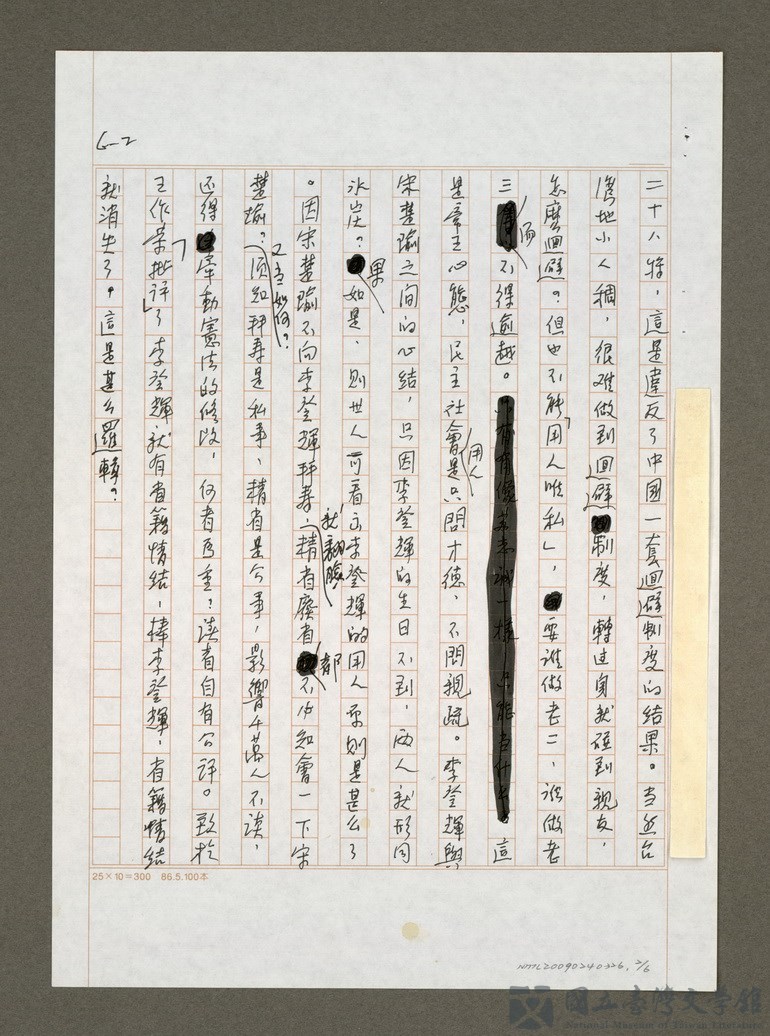 6-2
二十八將，這是違反了中國一套迴避制度的結果。當然台
灣地小人稠，很难做到迴避制度，轉过身就碰到親友，
怎麼迴避？但也不能「用人唯私」，要誰做老二、誰做老
三而不得逾越。這
是帝王心態，民主社會用人是只問才德，不問親疏。李登輝與
宋楚瑜之間的心結，只因李登輝的生日不到，兩人就形同
冰炭？果如是，則世人可看出李登輝的用人原則是甚么了
。因宋楚瑜不向李登輝拜壽就翻臉，精省廢省都不必知會一下宋
楚瑜？又當如何？須知拜壽是私事，精省是公事，影響千萬人不談，
还得牽動憲法的修改，何者為重？讀者自有公評。致於
王作榮「批評」了李登輝就有省籍情結，捧李登輝，省籍情結
就消失了，這是甚么邏輯？
25×10=300 86.5.100本
NMTL20090240326, 2/6
國立臺灣文學館
National Museum of Taiwan Literature